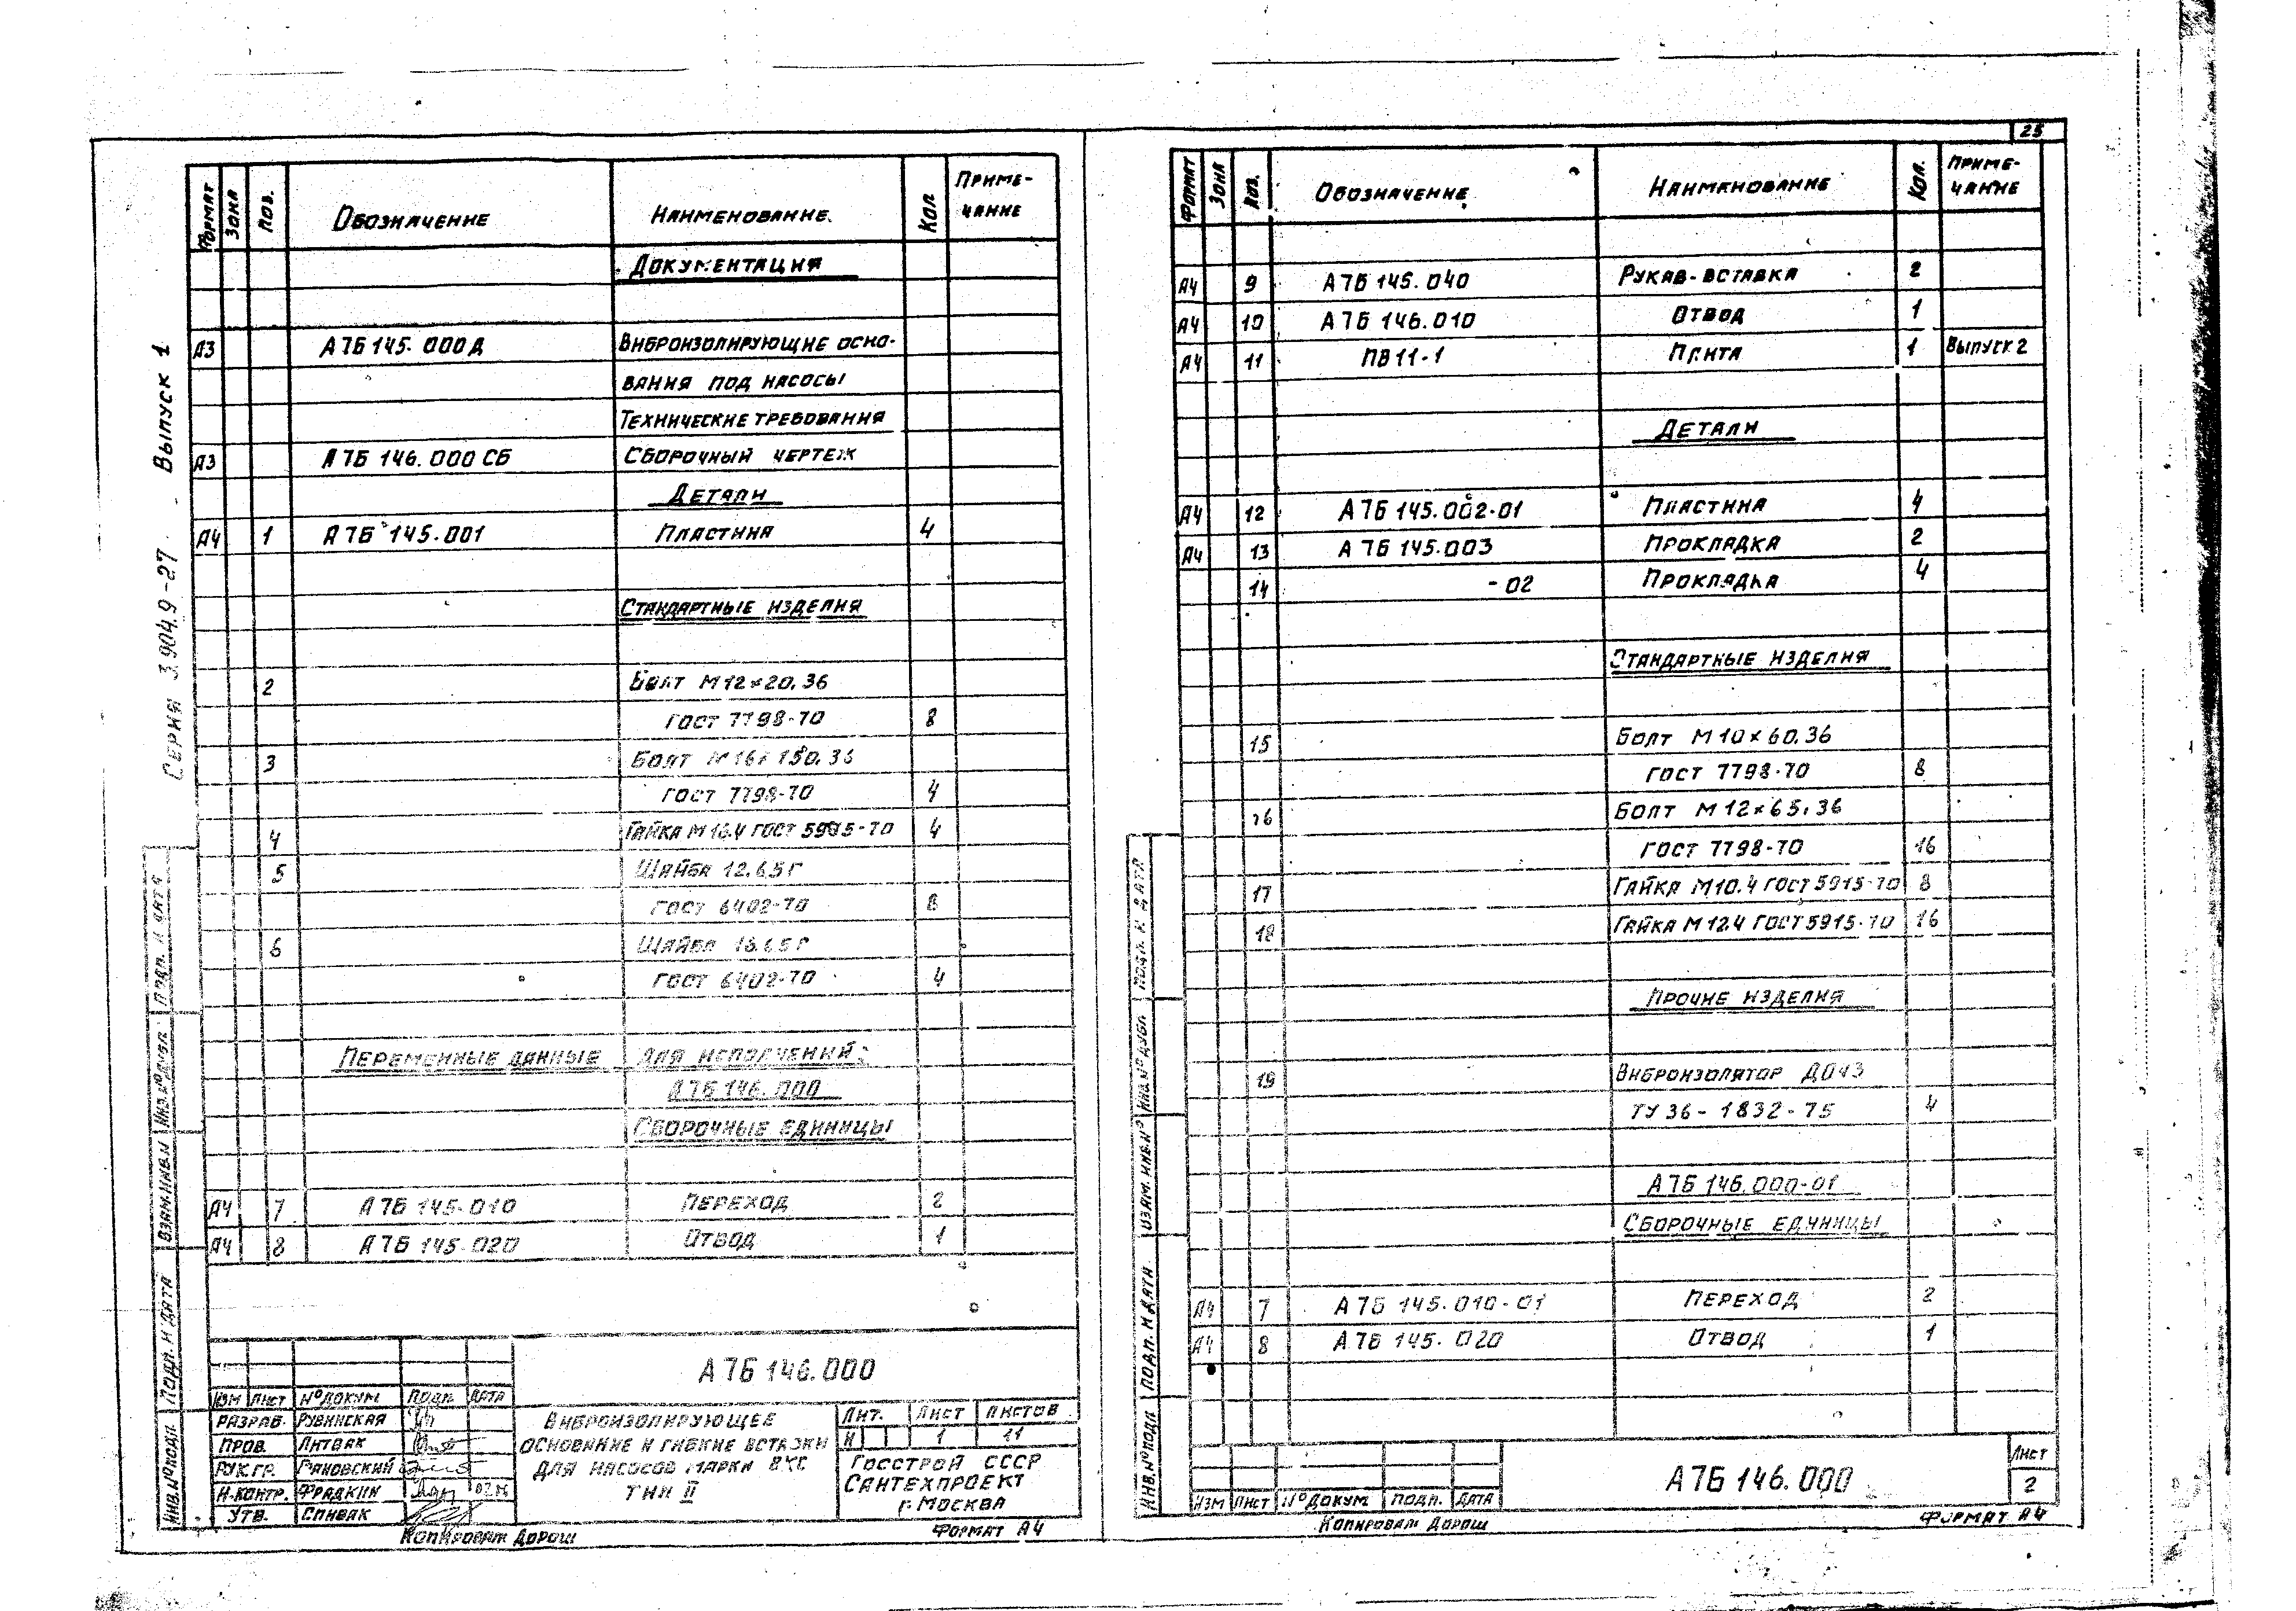 25
Серия 3.904.9-27 Выпуск 1
Формат Зона Поз. Обозначение Наименование Кол Приме-
чание
Документация
А3 А7Б 145.000Д Виброизолирующие осно-
вания под насосы
Технические требования
А3 А7Б 146.000 СБ Сборочный чертеж
Детали
А4 1 А7Б 145.001 Пластина 4
Стандартные изделия
2 Болт М12×20.36
ГОСТ 7798-70 8
3 Болт М16×150.36
ГОСТ 7798-70 4
4 Гайка М16.4 ГОСТ 5915-70 4
5 Шайба 12.65Г
ГОСТ 6402-70 8
6 Шайба 16.65Г
ГОСТ 6402-70 4
Переменные данные для исполнений:
А7Б 146.000
Сборочные единицы
А4 7 А7Б 145.010 Переход 2
А4 8 А7Б 145.020 Отвод 1
Инв.№подл. Подп. и дата Взам.инв.№ Инв.№дубл. Подп. и дата
А7Б 146.000
Изм Лист №докум Подп. Дата
Разраб. Рувинская
Пров. Литвак
Рук.гр. Гановский
Н.контр. Фрадкин
Утв. Спивак
Виброизолирующее
основание и гибкие вставки
для насосов марки ВКС
тип II
Лит. Лист Листов
И 1 11
Госстрой СССР
Сантехпроект
г. Москва
Копировал Дорош Формат А4
Формат Зона Поз. Обозначение Наименование Кол. Приме-
чание
А4 9 А7Б 145.040 Рукав-вставка 2
А4 10 А7Б 146.010 Отвод 1
А4 11 ПВ11-1 Плита 1 Выпуск 2
Детали
А4 12 А7Б 145.002-01 Пластина 4
А4 13 А7Б 145.003 Прокладка 2
14 -02 Прокладка 4
Стандартные изделия
15 Болт М10×60.36
ГОСТ 7798-70 8
16 Болт М12×65.36
ГОСТ 7798-70 16
17 Гайка М10.4 ГОСТ 5915-70 8
18 Гайка М12.4 ГОСТ 5915-70 16
Прочие изделия
19 Виброизолятор ДО43
ТУ 36-1832-75 4
А7Б 146.000-01
Сборочные единицы
А4 7 А7Б 145.010-01 Переход 2
А4 8 А7Б 145.020 Отвод 1
Инв.№подл Подп. и дата Взам.инв.№ Инв.№дубл Подп. и дата
Изм Лист №докум Подп. Дата
А7Б 146.000
Лист
2
Копировал Дорош Формат А4